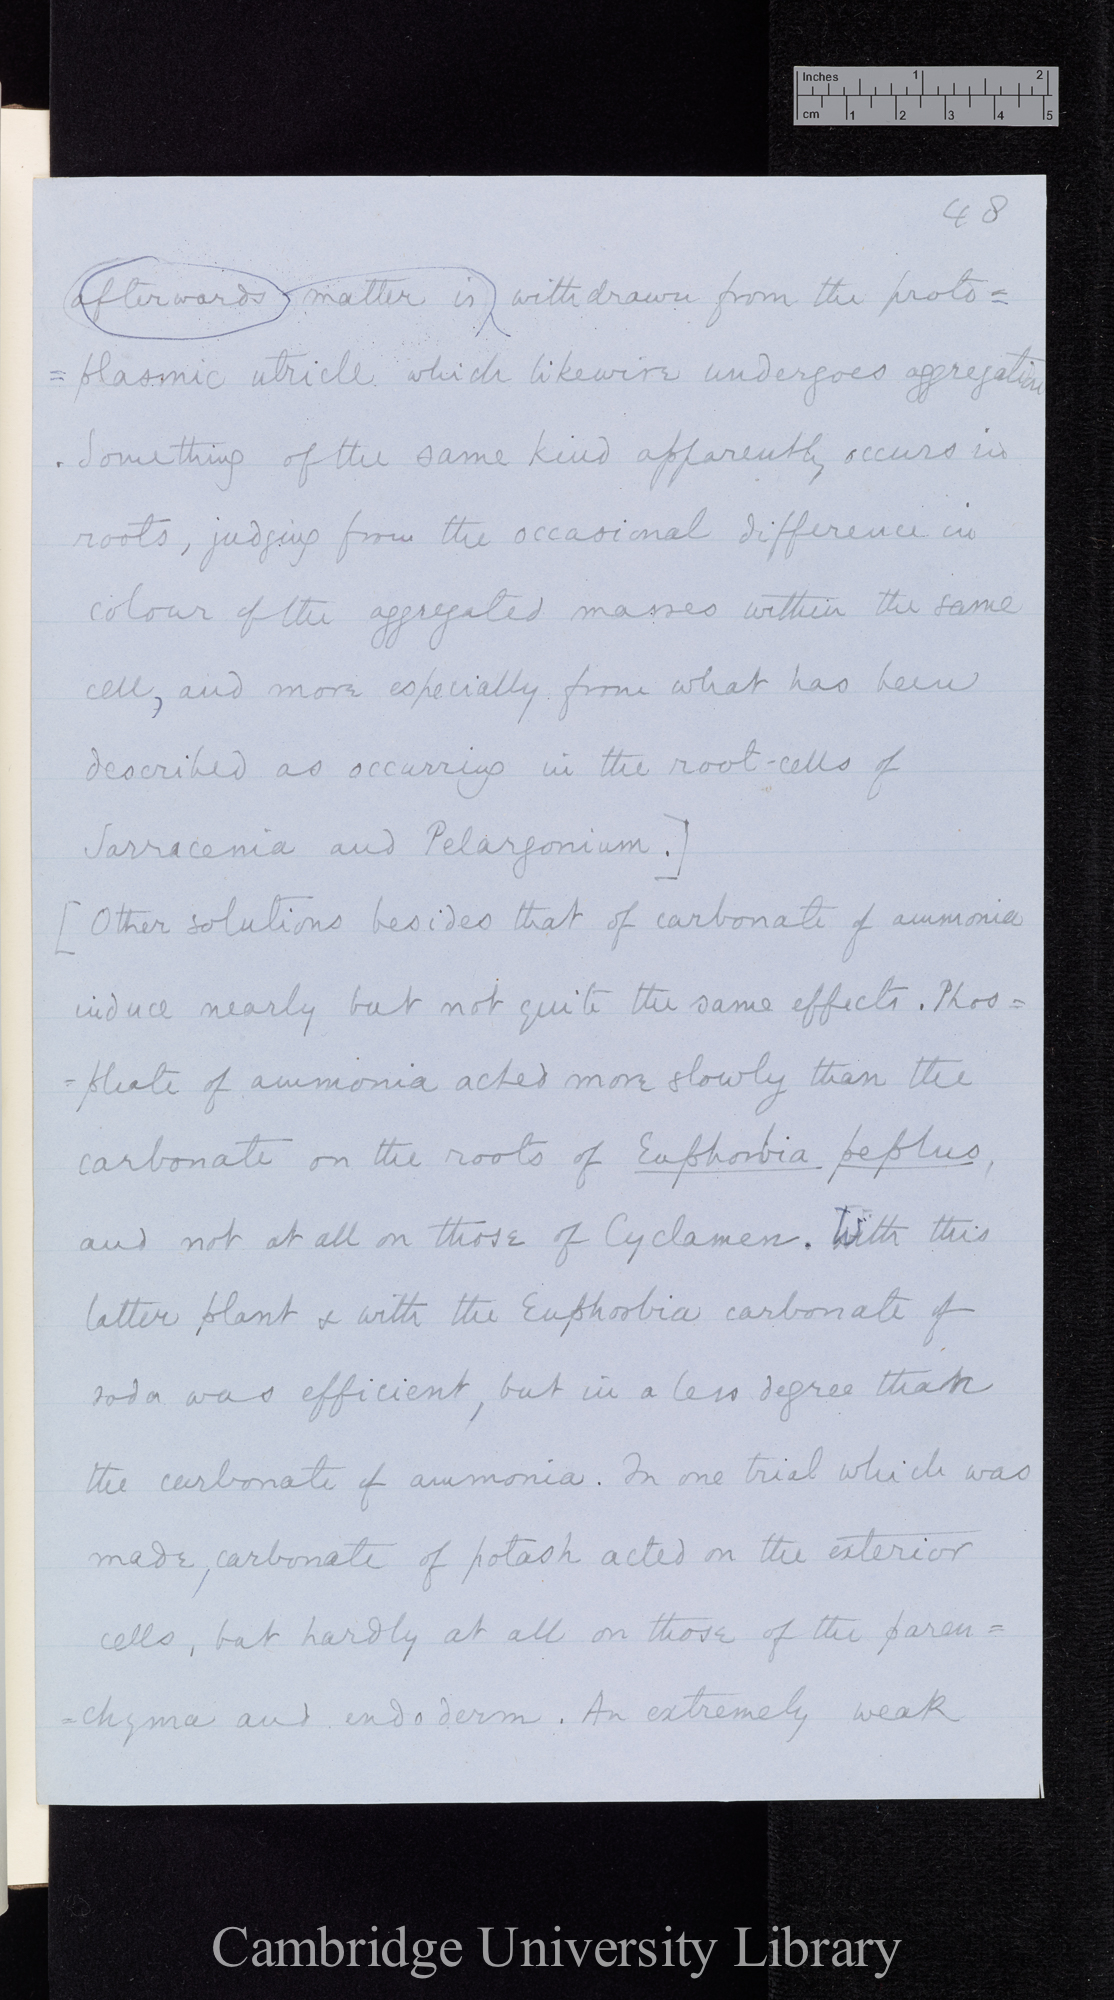 Inches 1 2
cm 1 2 3 4 5
48
afterwards matter is withdrawn from the proto=
=plasmic utricle which likewise undergoes aggregation
. Something of the same kind apparently occurs in
roots, judging from the occasional difference in
colour of the aggregated masses within the same
cell, and more especially from what has been
described as occurring in the root-cells of
Sarracenia and Pelargonium.]
[Other solutions besides that of carbonate of ammonia
induce nearly but not quite the same effects. Phos=
=phate of ammonia acted more slowly than the
carbonate on the roots of Euphorbia peplus,
and not at all on those of Cyclamen. With this
latter plant & with the Euphorbia carbonate of
soda was efficient, but in a less degree than
the carbonate of ammonia. In one trial which was
made, carbonate of potash acted on the exterior
cells, but hardly at all on those of the paren=
=chyma and endoderm. An extremely weak
Cambridge University Library